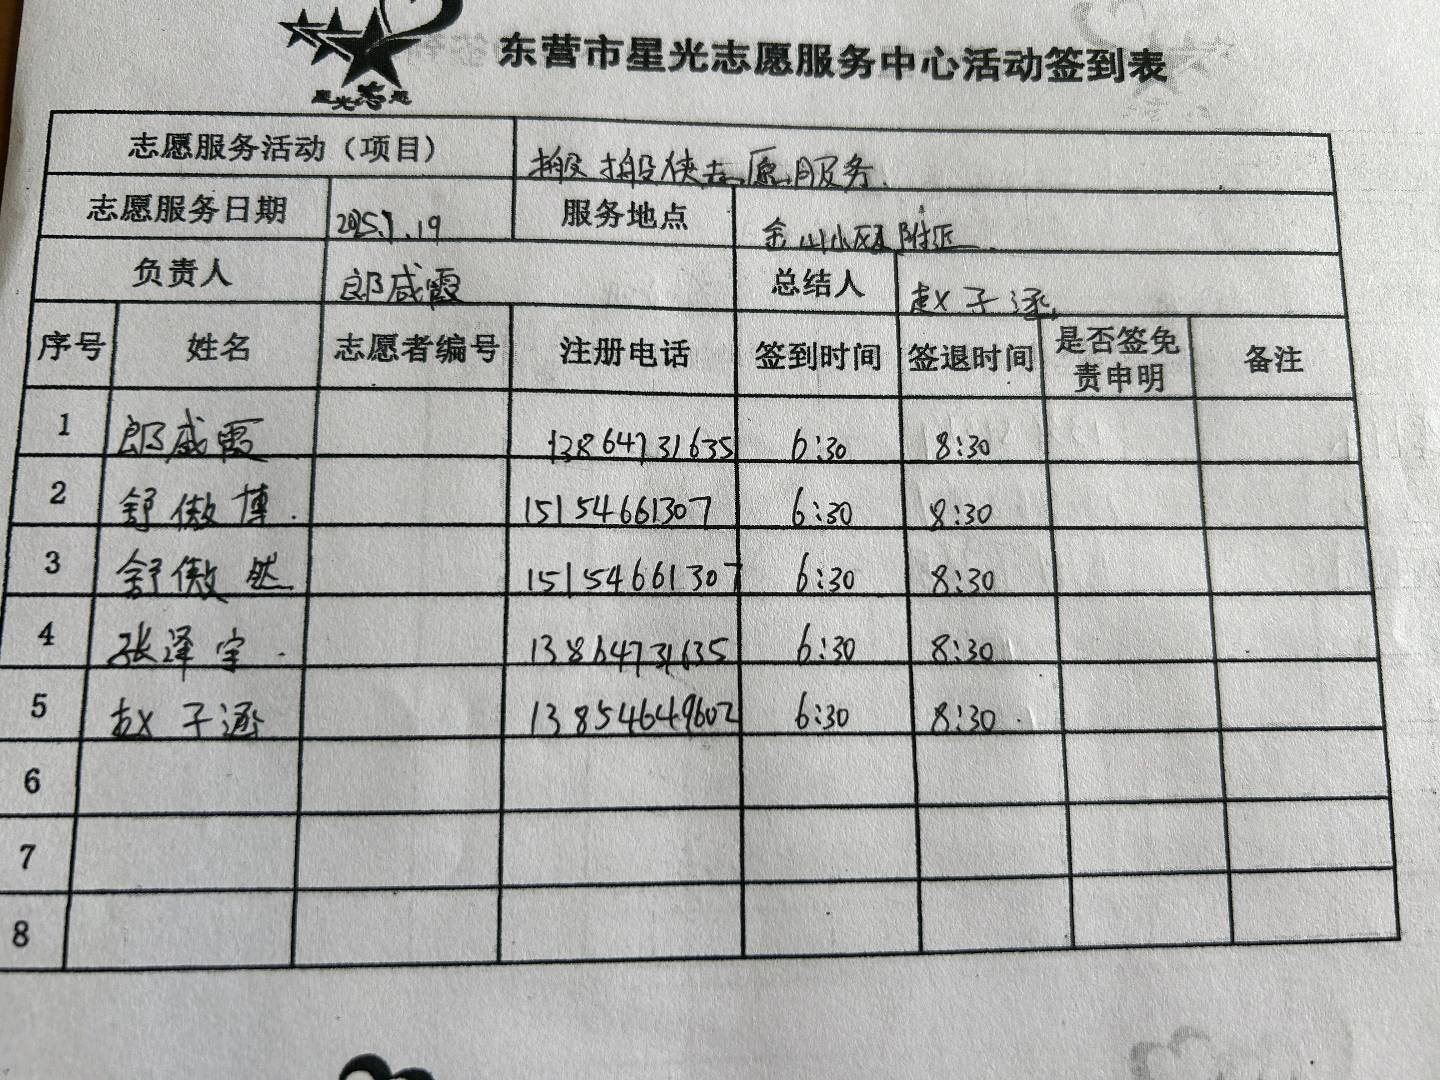 星光志愿
东营市星光志愿服务中心活动签到表
志愿服务活动（项目） 搬搬侠志愿服务.
志愿服务日期 2025.7.19 服务地点 金山小区附近.
负责人 郎咸霞 总结人 赵子涵
序号 姓名 志愿者编号 注册电话 签到时间 签退时间 是否签免责申明 备注
1 郎咸霞 13864731635 6:30 8:30
2 舒傲博. 15154661307 6:30 8:30
3 舒傲然 15154661307 6:30 8:30
4 张泽宇. 13864731635 6:30 8:30
5 赵子涵 13854649602 6:30 8:30.
6
7
8